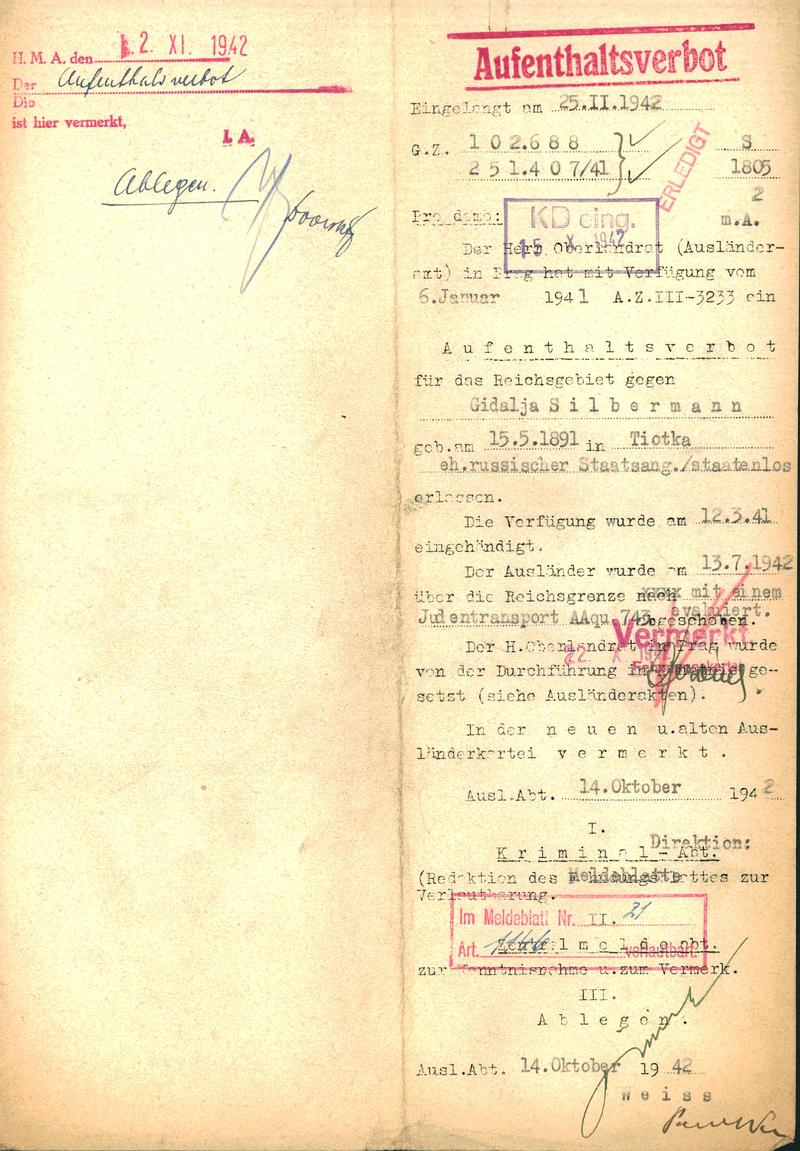 H. M. A. den 2. XI. 1942
Der Aufenthaltsverbot
Die
ist hier vermerkt,
I. A.
Ablegen.
Aufenthaltsverbot
Eingelangt am 25.II.1942
G.Z. 1 0 2.6 8 8 S
2 5 1.4 0 7/41 1805
ERLEDIGT
2
Pro domo: m.A.
KD eing.
15 X 1942
Der Herr Oberlandrat (Ausländer-
amt) in Prag hat mit Verfügung vom
6.Januar 1941 A.Z.III-3233 ein
A u f e n t h a l t s v e r b o t
für das Reichsgebiet gegen
Gidalja S i l b e r m a n n
geb.am 15.5.1891 in Tiotka
eh.russischer Staatsang./staatenlos
erlassen.
Die Verfügung wurde am 12.3.41
eingehändigt.
Der Ausländer wurde am 13.7.1942
über die Reichsgrenze nach mit einem
Judentransport AAqu 743 evakuiert.
abgeschoben.
Vermerkt
Der H.Oberlandrat in Prag wurde
von der Durchführung in Kenntnis ge-
setzt (siehe Ausländerakten).
In der n e u e n u.alten Aus-
länderkartei v e r m e r k t .
Ausl.Abt. 14.Oktober 1942
I.
Direktion:
K r i m i n a l - Abt.
(Redaktion des Meldeblatte zur
Verlautbarung.
Im Meldeblatt Nr. 21
II.
Art. verlautbart.
m e l d e abt.
zur Kenntnisnahme u.zum Vermerk.
III.
A b l e g e n .
Ausl.Abt. 14.Oktober 19 42
W e i s s